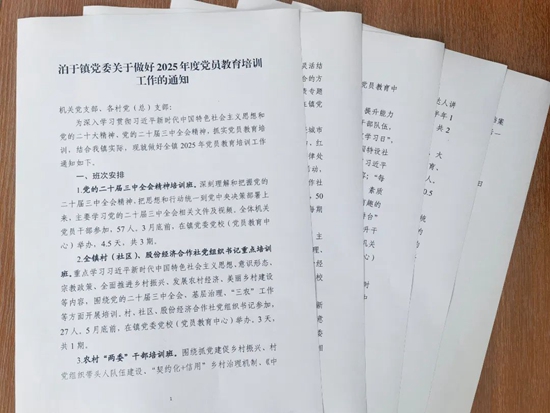 泊于镇党委关于做好2025年度党员教育培训
工作的通知
机关党支部、各村党（总）支部：
为深入学习贯彻习近平新时代中国特色社会主义思想和
党的二十大精神，党的二十届三中全会精神，抓实党员教育培
训，结合我镇实际，现就做好全镇2025年党员教育培训工作
通知如下。
一、班次安排
1.党的二十届三中全会精神培训班。深刻理解和把握党的
二十届三中全会精神，把思想和行动统一到党中央决策部署上
来，主要学习党的二十届三中全会相关文件及视频。全体机关
党员干部参加，57人，3月底前，在镇党委党校（党员教育中
心）举办，4.5天，共3期。
2.全镇村（社区）、股份经济合作社党组织书记重点培训
班。重点学习习近平新时代中国特色社会主义思想，意识形态，
宗教政策、全面推进乡村振兴、发展农村经济，美丽乡村建设
等内容，围绕党的二十届三中全会、基层治理、“三农”工作
等方面开展培训，村、社区、股份经济合作社党组织书记参加，
27人，5月底前，在镇党委党校（党员教育中心）举办，3天，
共1期。
3.农村“两委”干部培训班。围绕抓党建促乡村振兴、村
党组织带头人队伍建设、“契约化+信用”乡村治理机制、《中
1
灵活结
合的方
质专题
在镇党
城市
，红
律处
作社
，50
每期
新
建、
展
党员教育中
提升能力
部队伍，
学习日”，
因特设社
习近平
部；“每
、素质
有趣的
拌台”
升干
机关
达人讲
年1
共2
人，
0.5
统
档案